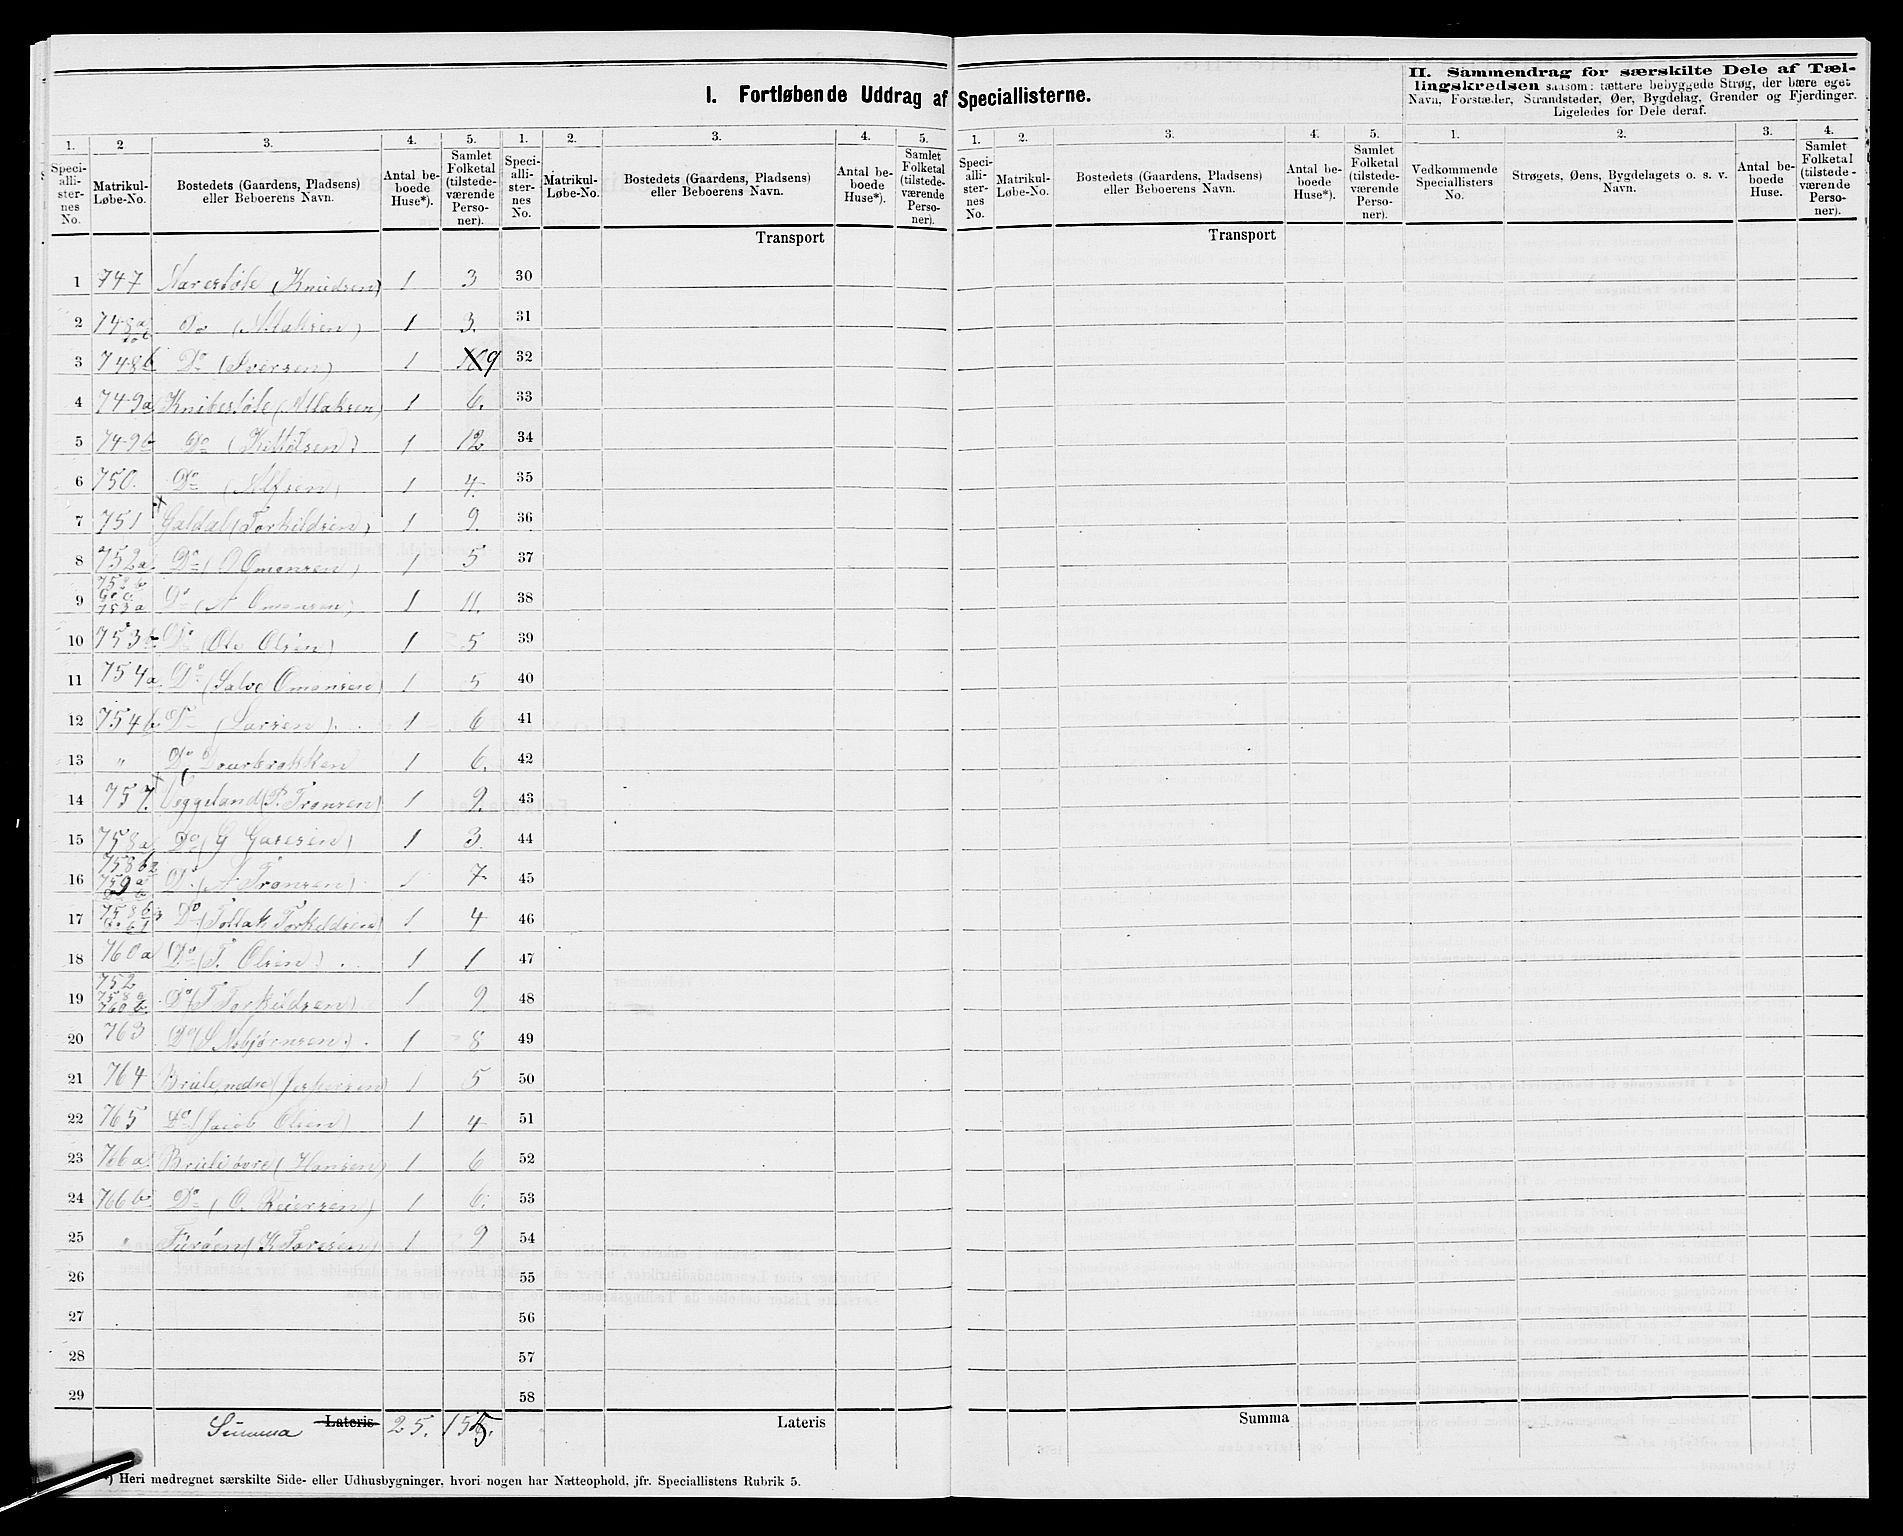 I. Fortløbende Uddrag af Speciallisterne.
II. Sammendrag for særskilte Dele af Tællingskredsen saasom: tættere bebyggede Strøg, der bære eget Navn, Forstæder, Strandsteder, Øer, Bygdelag, Grender og Fjerdinger. Ligeledes for Dele deraf.
1. 2 3. 4. 5. 1. 2. 3. 4. 5. 1. 2. 3. 4. 5. 1. 2. 3. 4.
Speciallisternes No. Matrikul-Løbe-No. Bostedets (Gaardens, Pladsens) eller Beboerens Navn. Antal beboede Huse*). Samlet Folketal (tilstedeværende Personer).
Speciallisternes No. Matrikul-Løbe-No. Bostedets (Gaardens, Pladsens) eller Beboerens Navn. Antal beboede Huse*). Samlet Folketal (tilstedeværende Personer).
Speciallisternes No. Matrikul-Løbe-No. Bostedets (Gaardens, Pladsens) eller Beboerens Navn. Antal beboede Huse*). Samlet Folketal (tilstedeværende Personer).
Vedkommende Speciallisters No. Strøgets, Øens, Bygdelagets o. s. v. Navn. Antal beboede Huse. Samlet Folketal (tilstedeværende Personer).
Transport Transport
1 747 (Knudsen) 1 3 30
2 748a Do 1 3. 31
3 748b Do (Iversen) 1 9 32
4 749a 1 6. 33
5 749b Do 1 12 34
6 750. Do 1 4. 35
7 751 Galdal (Torkildsen) 1 9. 36
8 752a Do (O Omonsen) 1 5 37
9 753a Do (A Omonsen) 1 11. 38
10 753b Do (Ole Olsen) 1 5 39
11 754a Do (Salve Omonsen) 1 5 40
12 754b Do (Larsen). 1 6 41
13 " Do 1 6. 42
14 757. Veggeland (P. Tronsen) 1 9. 43
15 758a Do (G 1 3. 44
16 758b2 759a Do (A Tronsen) 1 7 45
17 758b3 Do (Tollak Torkildsen) 1 4 46
18 760a Do (T. Olsen) 1 1 47
19 752 758a 760b. Do (T Torkildsen) 1 9 48
20 763 Do (S Asbjørnsen) 1 8 49
21 764 nedre 1 5 50
22 765 Do (Jacob Olsen) 1 4 51
23 766a øvre (Hansen) 1 6 52
24 766b Do (O. Reiersen) 1 6. 53
25 " (K Toresen) 1 9 54
26 55
27 56
28 57
29 58
Summa Lateris 25. 155. Lateris Summa
*) Heri medregnet særskilte Side- eller Udhusbygninger, hvori nogen har Natteophold, jfr. Speciallistens Rubrik 5.